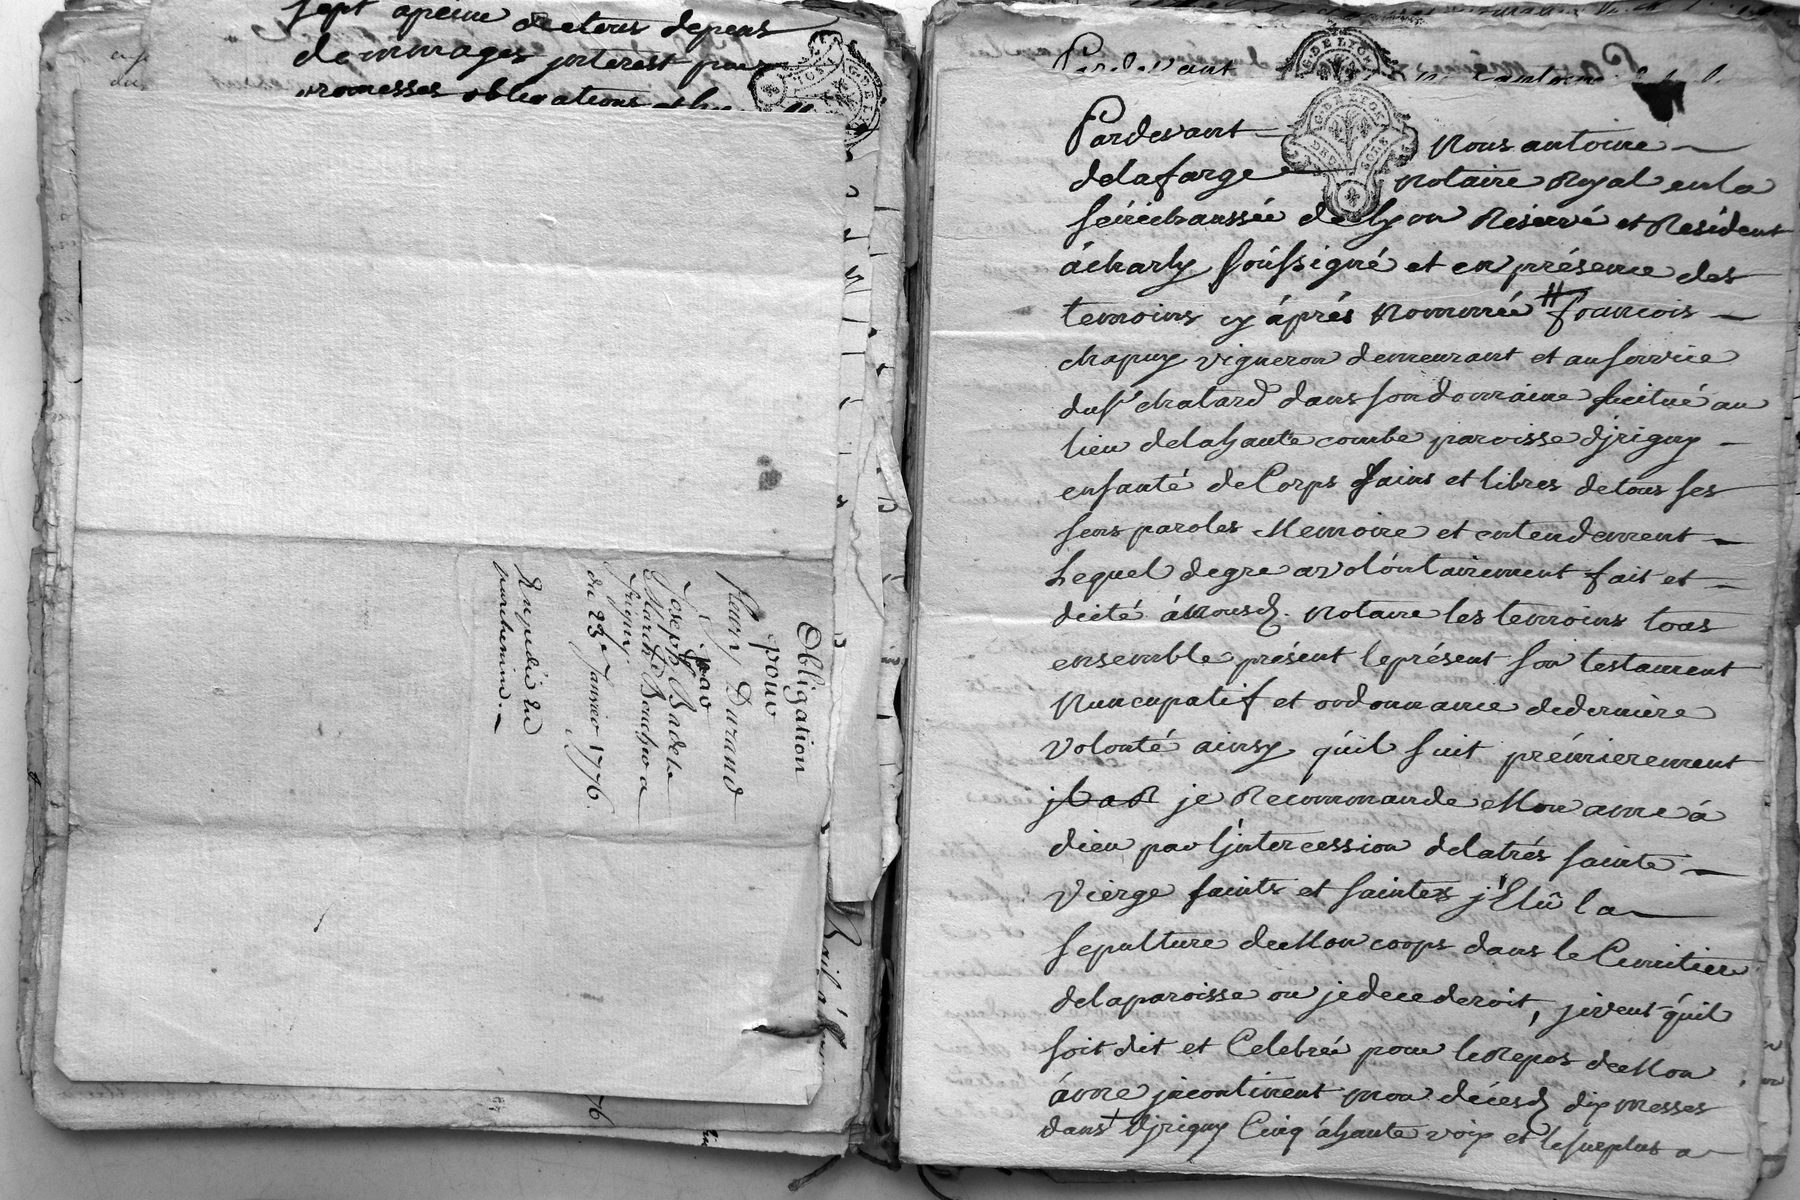 sept apeine de tous depens
dommages jnterest pour
promesses obligations
Obligation
pour
fleury Durand
par
Joseph Badet
Marchd Boucher a
Jrigny.
du 23e Janvier 1776.
Expedié en
parchemin.
Bail a
76
Pardevant
Pardevant Nous antoine
delafarge notaire Royal en la
sénéchaussée de lyon Réservé et Résident
à charly soussigné et en présence des
temoins cy áprés nommée # françois
chapuy vigneron demeurant et au service
du sr chatard dans son domaine scitué au
lieu de la haute combe paroisse djrigny
en santé de Corps sains et libres de tous ses
sens paroles Memoire et entendement
Lequel de gre a volontairement fait et
dicté à nousd. notaire les temoins tous
ensemble présent le présent son testament
Nuncupatif et ordonnance de derniere
volonté ainsy qu'il suit prémierement
je Recommande Mon ame à
dieu par l'jntercession de la trés sainte
Vierge saints et saintes j'Elû la
sepulture de Mon corps dans le Cimitiere
de la paroisse ou je decederoit, je veut qu'il
soit dit et Celebrée pour le Repos de Mon
áme jncontinent mon décésd dix messes
dans djrigny Cinq à haute voix et le surplus a